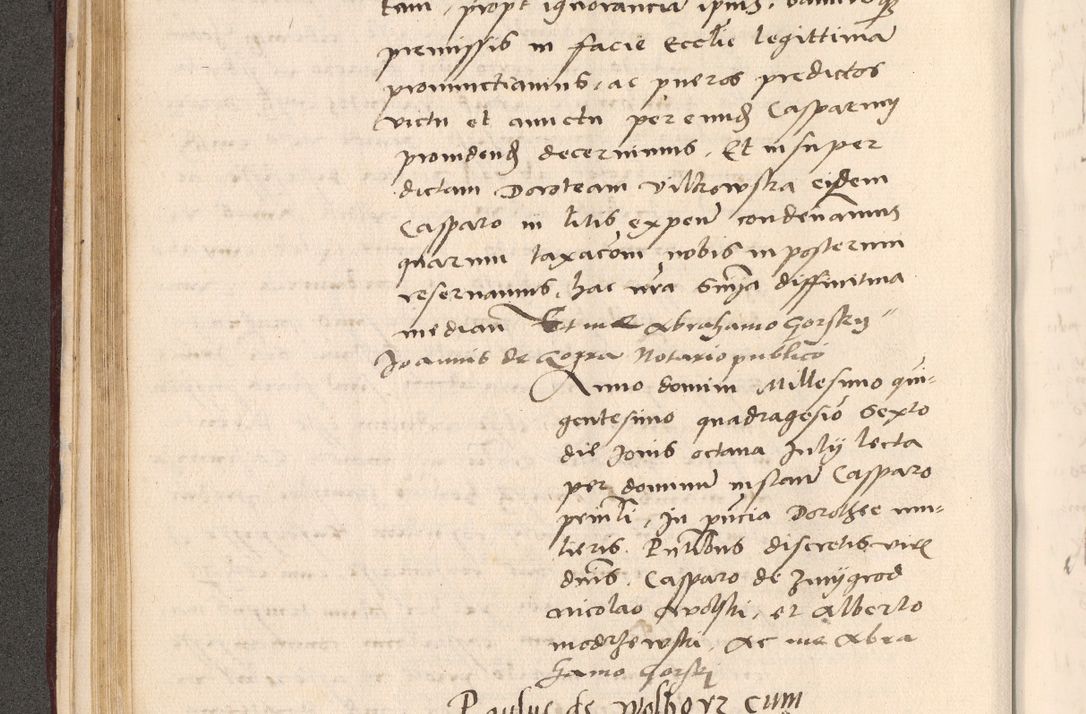 tam, propt ignorancia ipius,
premissis in facie Ecclie legittima
pronunctiamus, ac pueros predictos
victu et amictu per eund Casparum
prouidend decernimus. Et insuper
dictam Doroteam Viltrowska eidem
Casparo in litis expen condenamus
quarum taxacom nobis inposterum
reseruamus, hac nra Snia diffinitiua
median Et me Abrahamo Gorsky
Joannis de Gopra Notario publico
Anno domini Millesimo quin-
gentesimo quadragesio Sexto
die Jouis octaua July lecta
per dominum instan Casparo
pnti, In pncia Dorothee mu-
lieris. Pntibus discretis viris
dnis. Casparo de Zmygrod
Nicolao Wolski, et Alberto
modrzewski, Ac me Abra
hamo Gorskj
Paulus de Wolborz cum